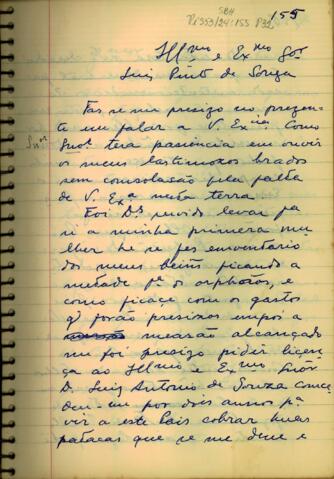 SBH
Pi 353/24:155 P32
155
Illmo e Exmo Snr
Luiz Pinto de Souza
Fas se me precizo no prezen-
te me falar a V. Excia Como
Snor
Snor tera pasiencia em ouvir
os meus lastimozos brados
sem consolasão pela falta
de V. Exa nesta terra
Foi Ds servido levar pa
si a minha primera mu
lher he se fes enventario
dos meus beiñs ficando a
metade pa os orphaõs, e
como ficace com os gastos
q forão presizos
mesaõ alcançado
me foi presizo pidir licen
ça ao Illmo e Exmo Snor
D. Luiz Antonio de Souza conce
deu-me por dois annos pa
vir a este Pais cobrar huas
patacas que se me deve e